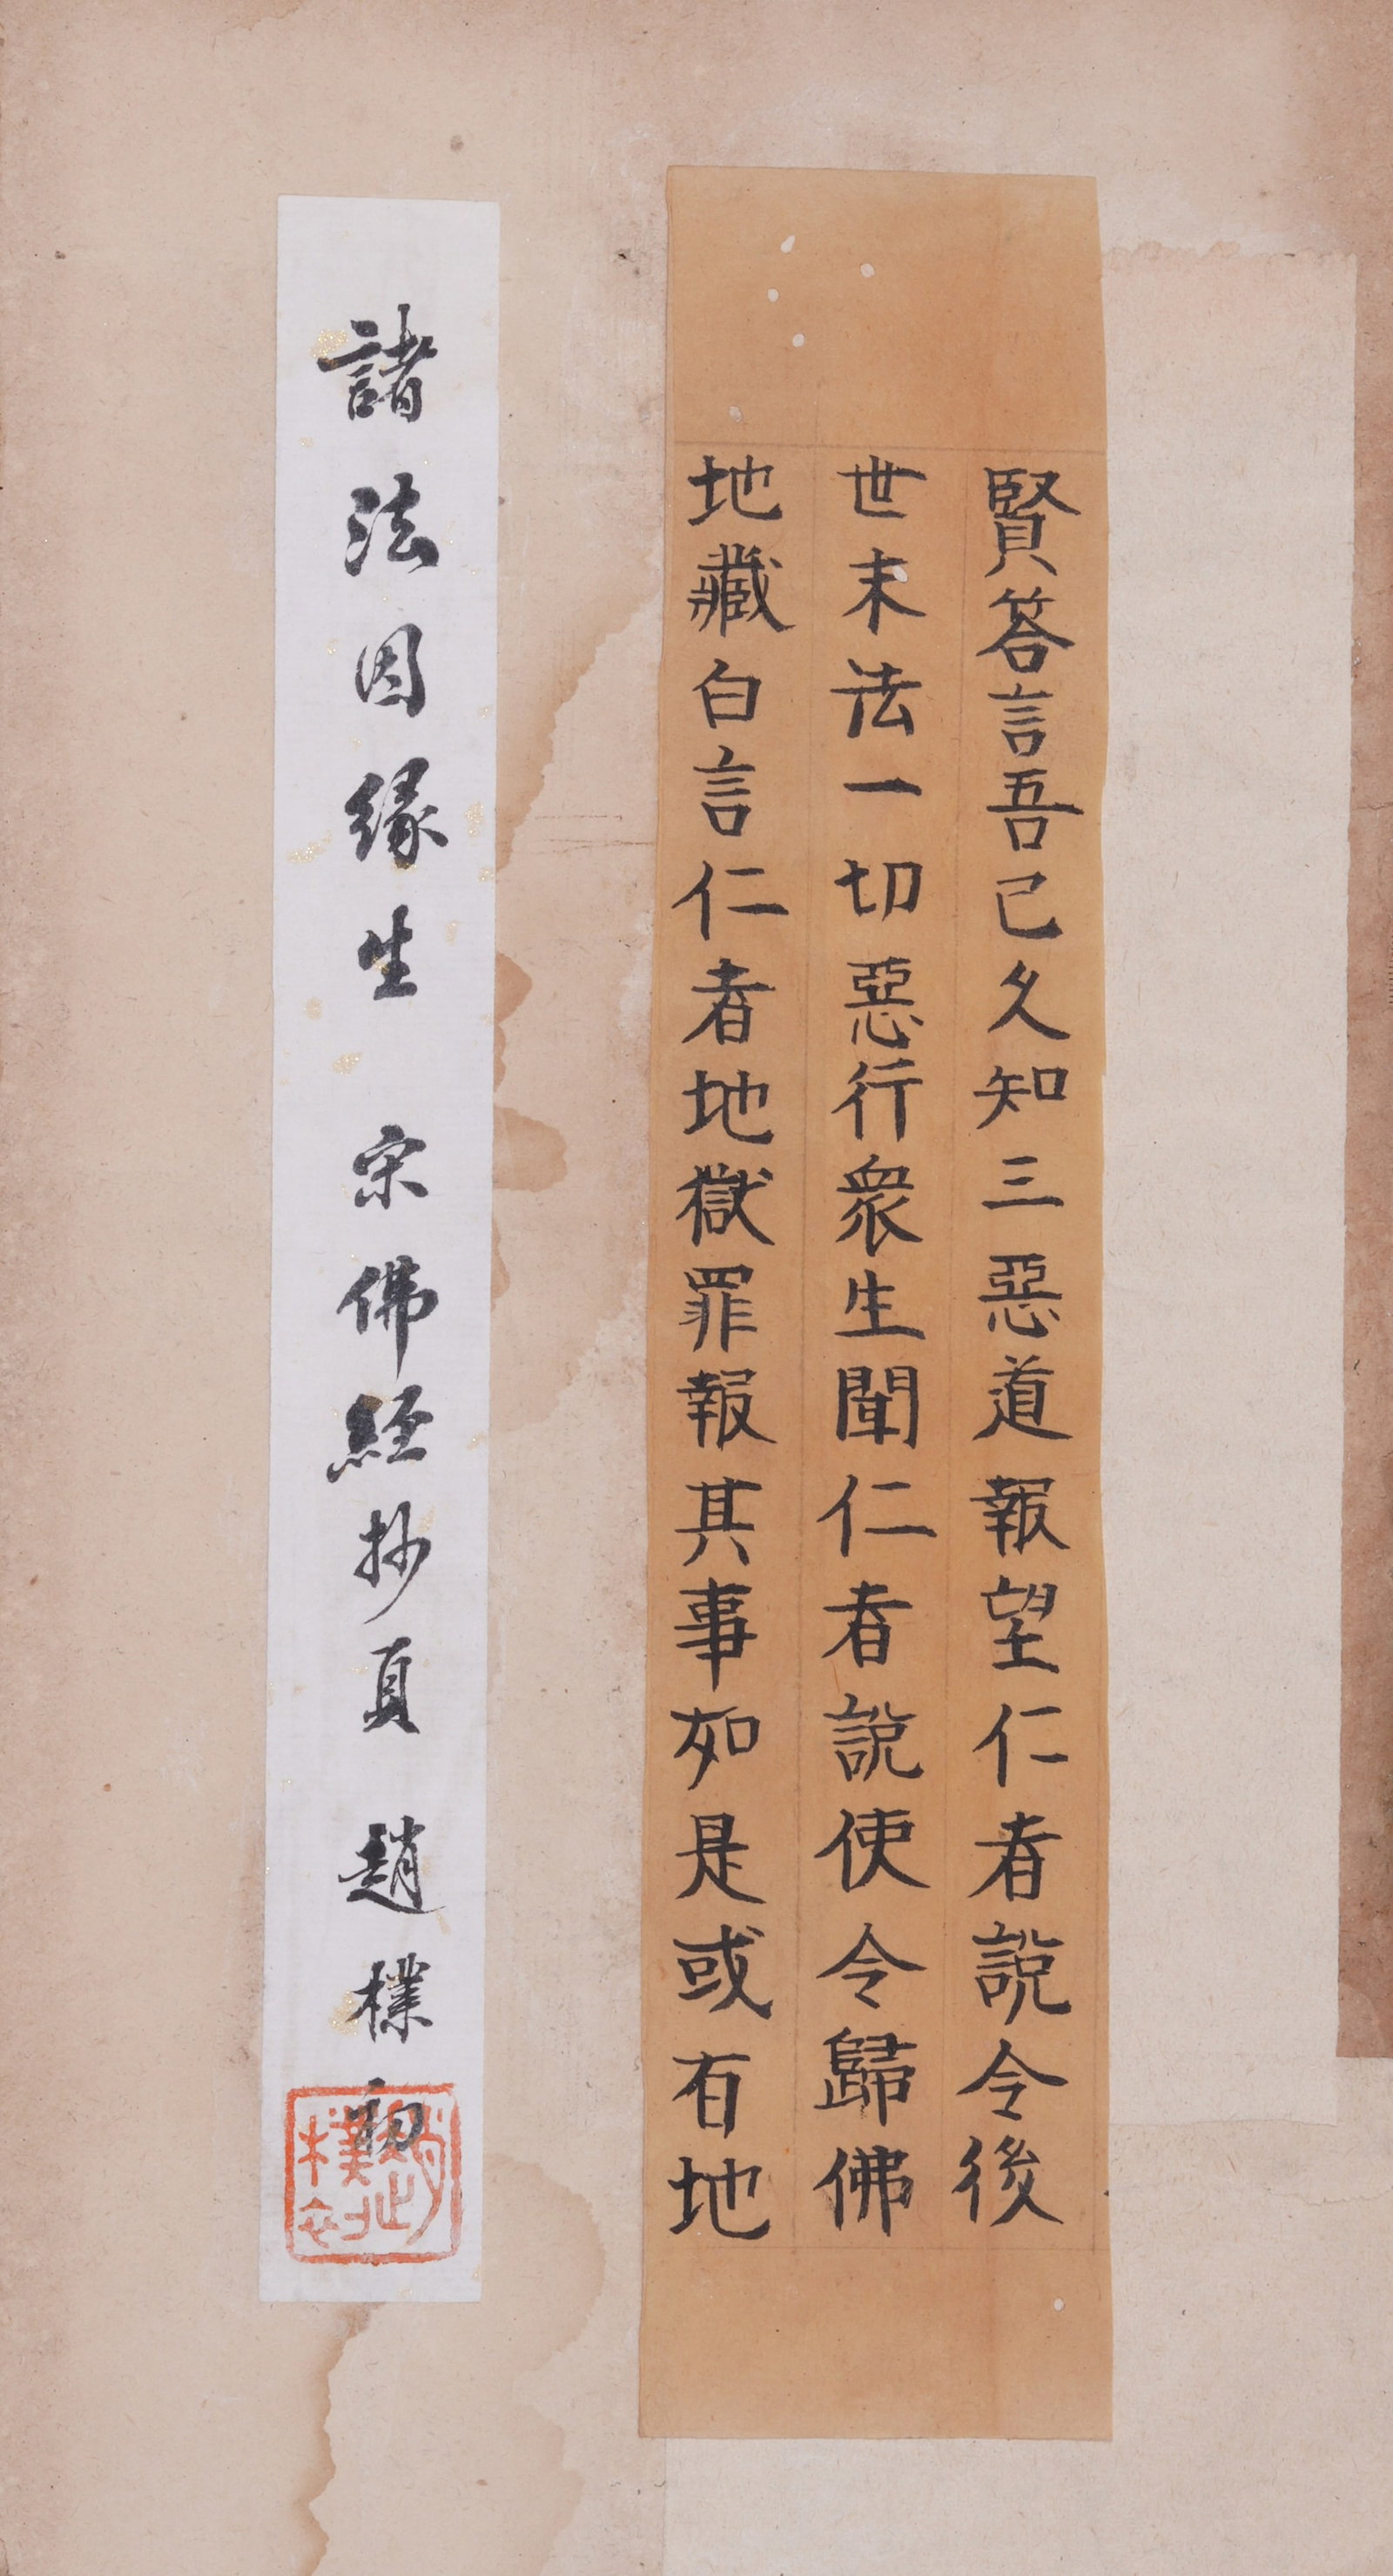 賢荅言吾已久知三惡道報望仁者說令後
世末法一切惡行衆生聞仁者說使令歸佛
地藏白言仁者地獄罪報其事如是或有地
諸法因緣生 宋佛經抄頁 趙樸初